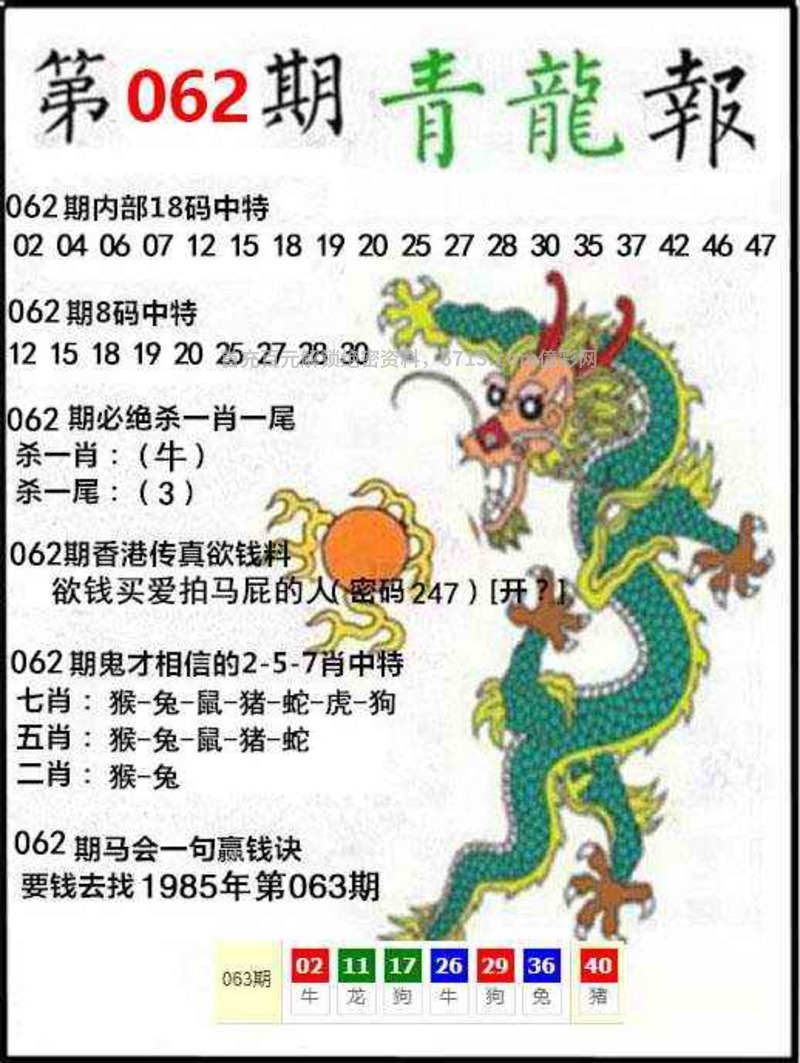 第062期青龍報
062期内部18码中特
02 04 06 07 12 15 18 19 20 25 27 28 30 35 37 42 46 47
062期8码中特
12 15 18 19 20 25 27 28 30
062 期必绝杀一肖一尾
杀一肖：(牛)
杀一尾：(3)
062期香港传真欲钱料
欲钱买爱拍马屁的人(密码247)[开?]
062期鬼才相信的2-5-7肖中特
七肖：猴-兔-鼠-猪-蛇-虎-狗
五肖：猴-兔-鼠-猪-蛇
二肖：猴-兔
062 期马会一句赢钱诀
要钱去找1985年第063期
063期 02 11 17 26 29 36 40
牛 龙 狗 牛 狗 兔 猪